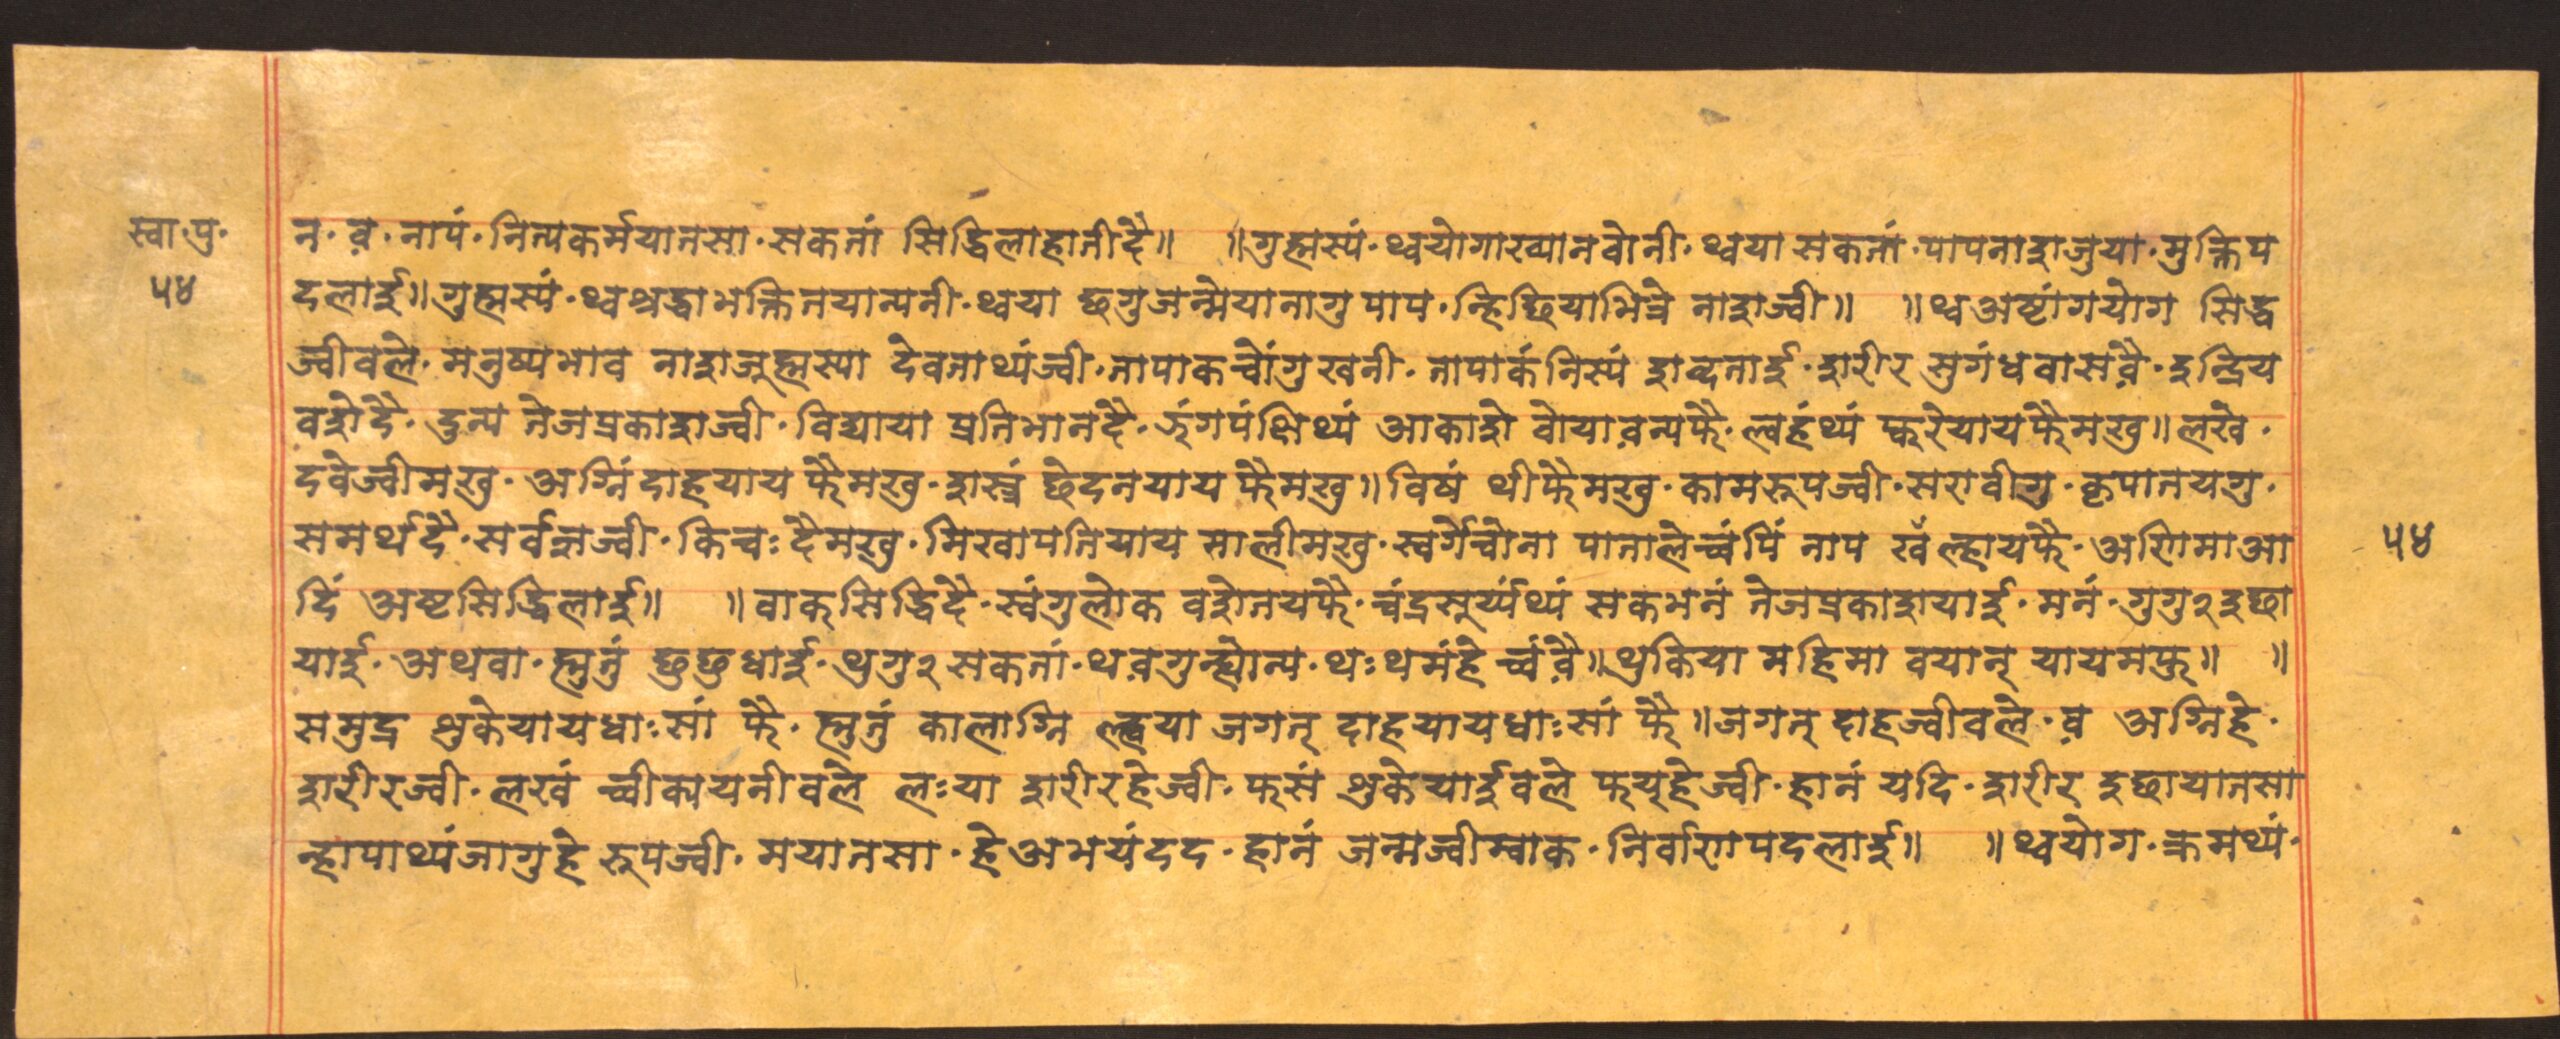 स्वा.पु.
५४
न. व़. नापं. नित्यकर्मयातसा. सकतां सिद्धिलाहातीदै॥ ॥गुह्मस्यं. थ्वयोगाख्यानवोनी. थ्वया सकतां. पापनाशजुया. मुक्तिप
दलाई॥गुह्मस्यं. थ्वश्रद्धाभक्तितयान्यनी. थ्वया छगुजन्मेयानागु पाप. न्हिछियाभित्रे नाशज्वी॥ ॥थ्वअष्टांगयोग सिद्ध
ज्वीवले. मनुष्यभाव नाशजूह्मस्या देवताथ्यंज्वी. तापाकच्वोंगु खनी. तापाकंनिस्यं शब्दताई. शरीर सुगंधवासव़ै. इन्द्रिय
वशेदै. इत्य तेजप्रकाशज्वी. विद्याया प्रतिभानदै. झंगपंक्षिथ्यं आकाशे वोयाव़न्यफै. ल्वहंथ्यं फुरेयायफैमखु॥लखे.
दवेज्वीमखु. अग्निंदाहयाय फैमखु. शस्त्रं छेदनयाय फैमखु॥विषं थीफैमखु. कामरूपज्वी. सरावीगु. कृपातयगु.
समर्थदै. सर्वज्ञज्वी. किचः दैमखु. मिखापतियाय मालीमखु. स्वर्गेच्वोना पातालेच्वंपिं नाप खँल्हायफै. अणिमाआ
५४
दिं अष्टसिद्धिलाई॥ ॥वाक्सिद्धिदै. स्वंगुलोक वशेतयफै. चंद्रसूर्य्यंथ्यं सकभनं तेजप्रकाशयाई. मनं. गुगु२इछा
याई. अथवा. ह्मुतुं छुछुधाई. थुगु२सकतां. थव़गुन्ह्योन्य. थःथमंहे च्वंव़ै॥थुकिया महिमा वयान् यायमफु॥ ॥
समुद्र शुकेयायधाःसां फै. ह्मुतुं कालाग्नि ल्ह्वया जगत् दाहयायधाःसां फै॥जगत् दाहज्वीवले. व़ अग्निहे.
शरीरज्वी. लखं च्वीकायनीवले लःया शरीरहेज्वी. फसं शुकेयाईवले फय्हेज्वी. हानं यदि. शरीर इछायातसा
न्हापाथ्यंजागुहे रूपज्वी. मयातसा. हेअभयंदद. हानं जन्मज्वीम्वाक. निर्वाणपदलाई॥ ॥थ्वयोग. क्रमथ्यं.